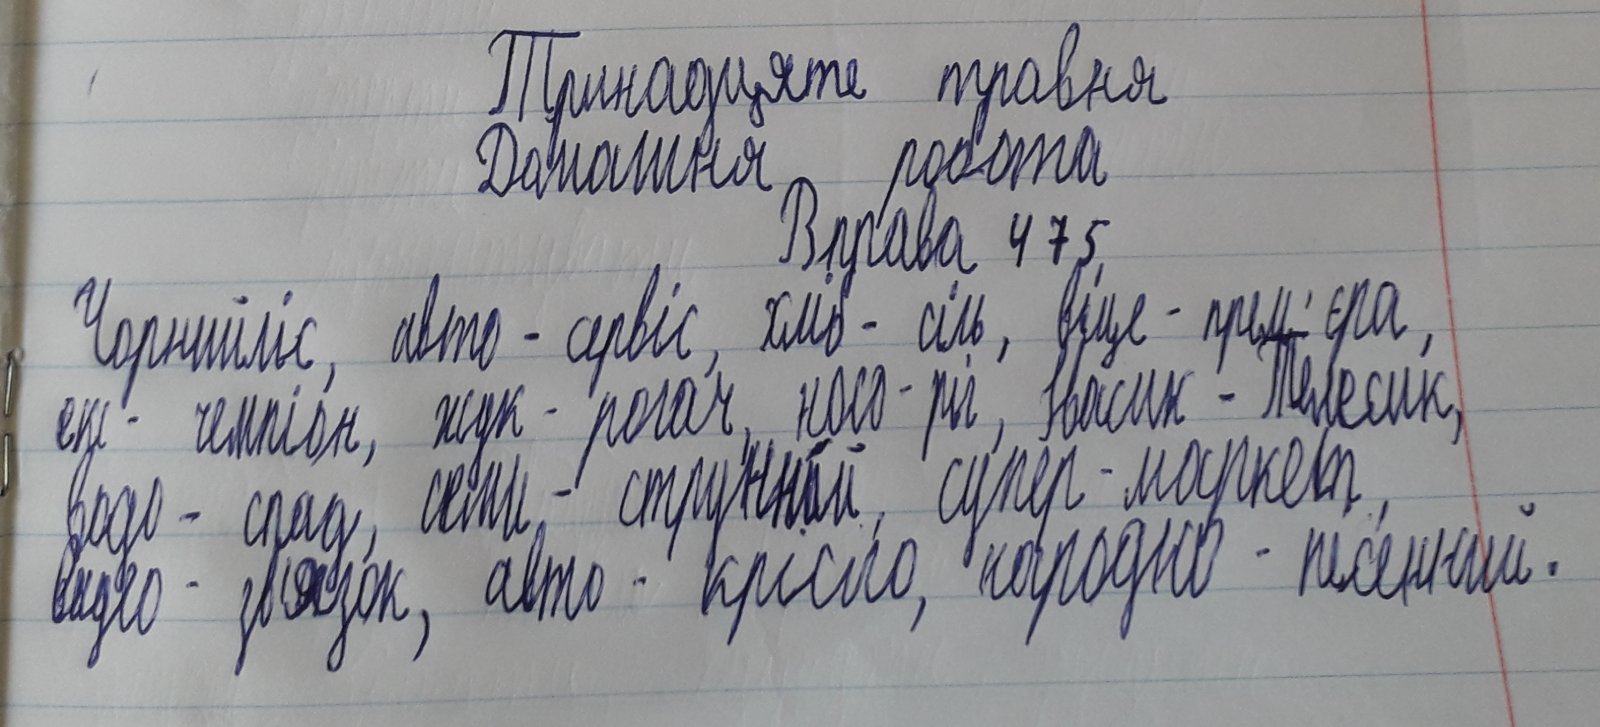 Тринадцяте травня
Домашня робота
Вправа 475
Чорнийліс, авто - сервіс, хліб - сіль, віце - прем'єра,
екс - чемпіон, жук - рогач, носо - ріг, Івасик - Телесик,
водо - спад, семи - струнний, супер - маркет,
видео - зв'язок, авто - крісло, народно - пісенний.